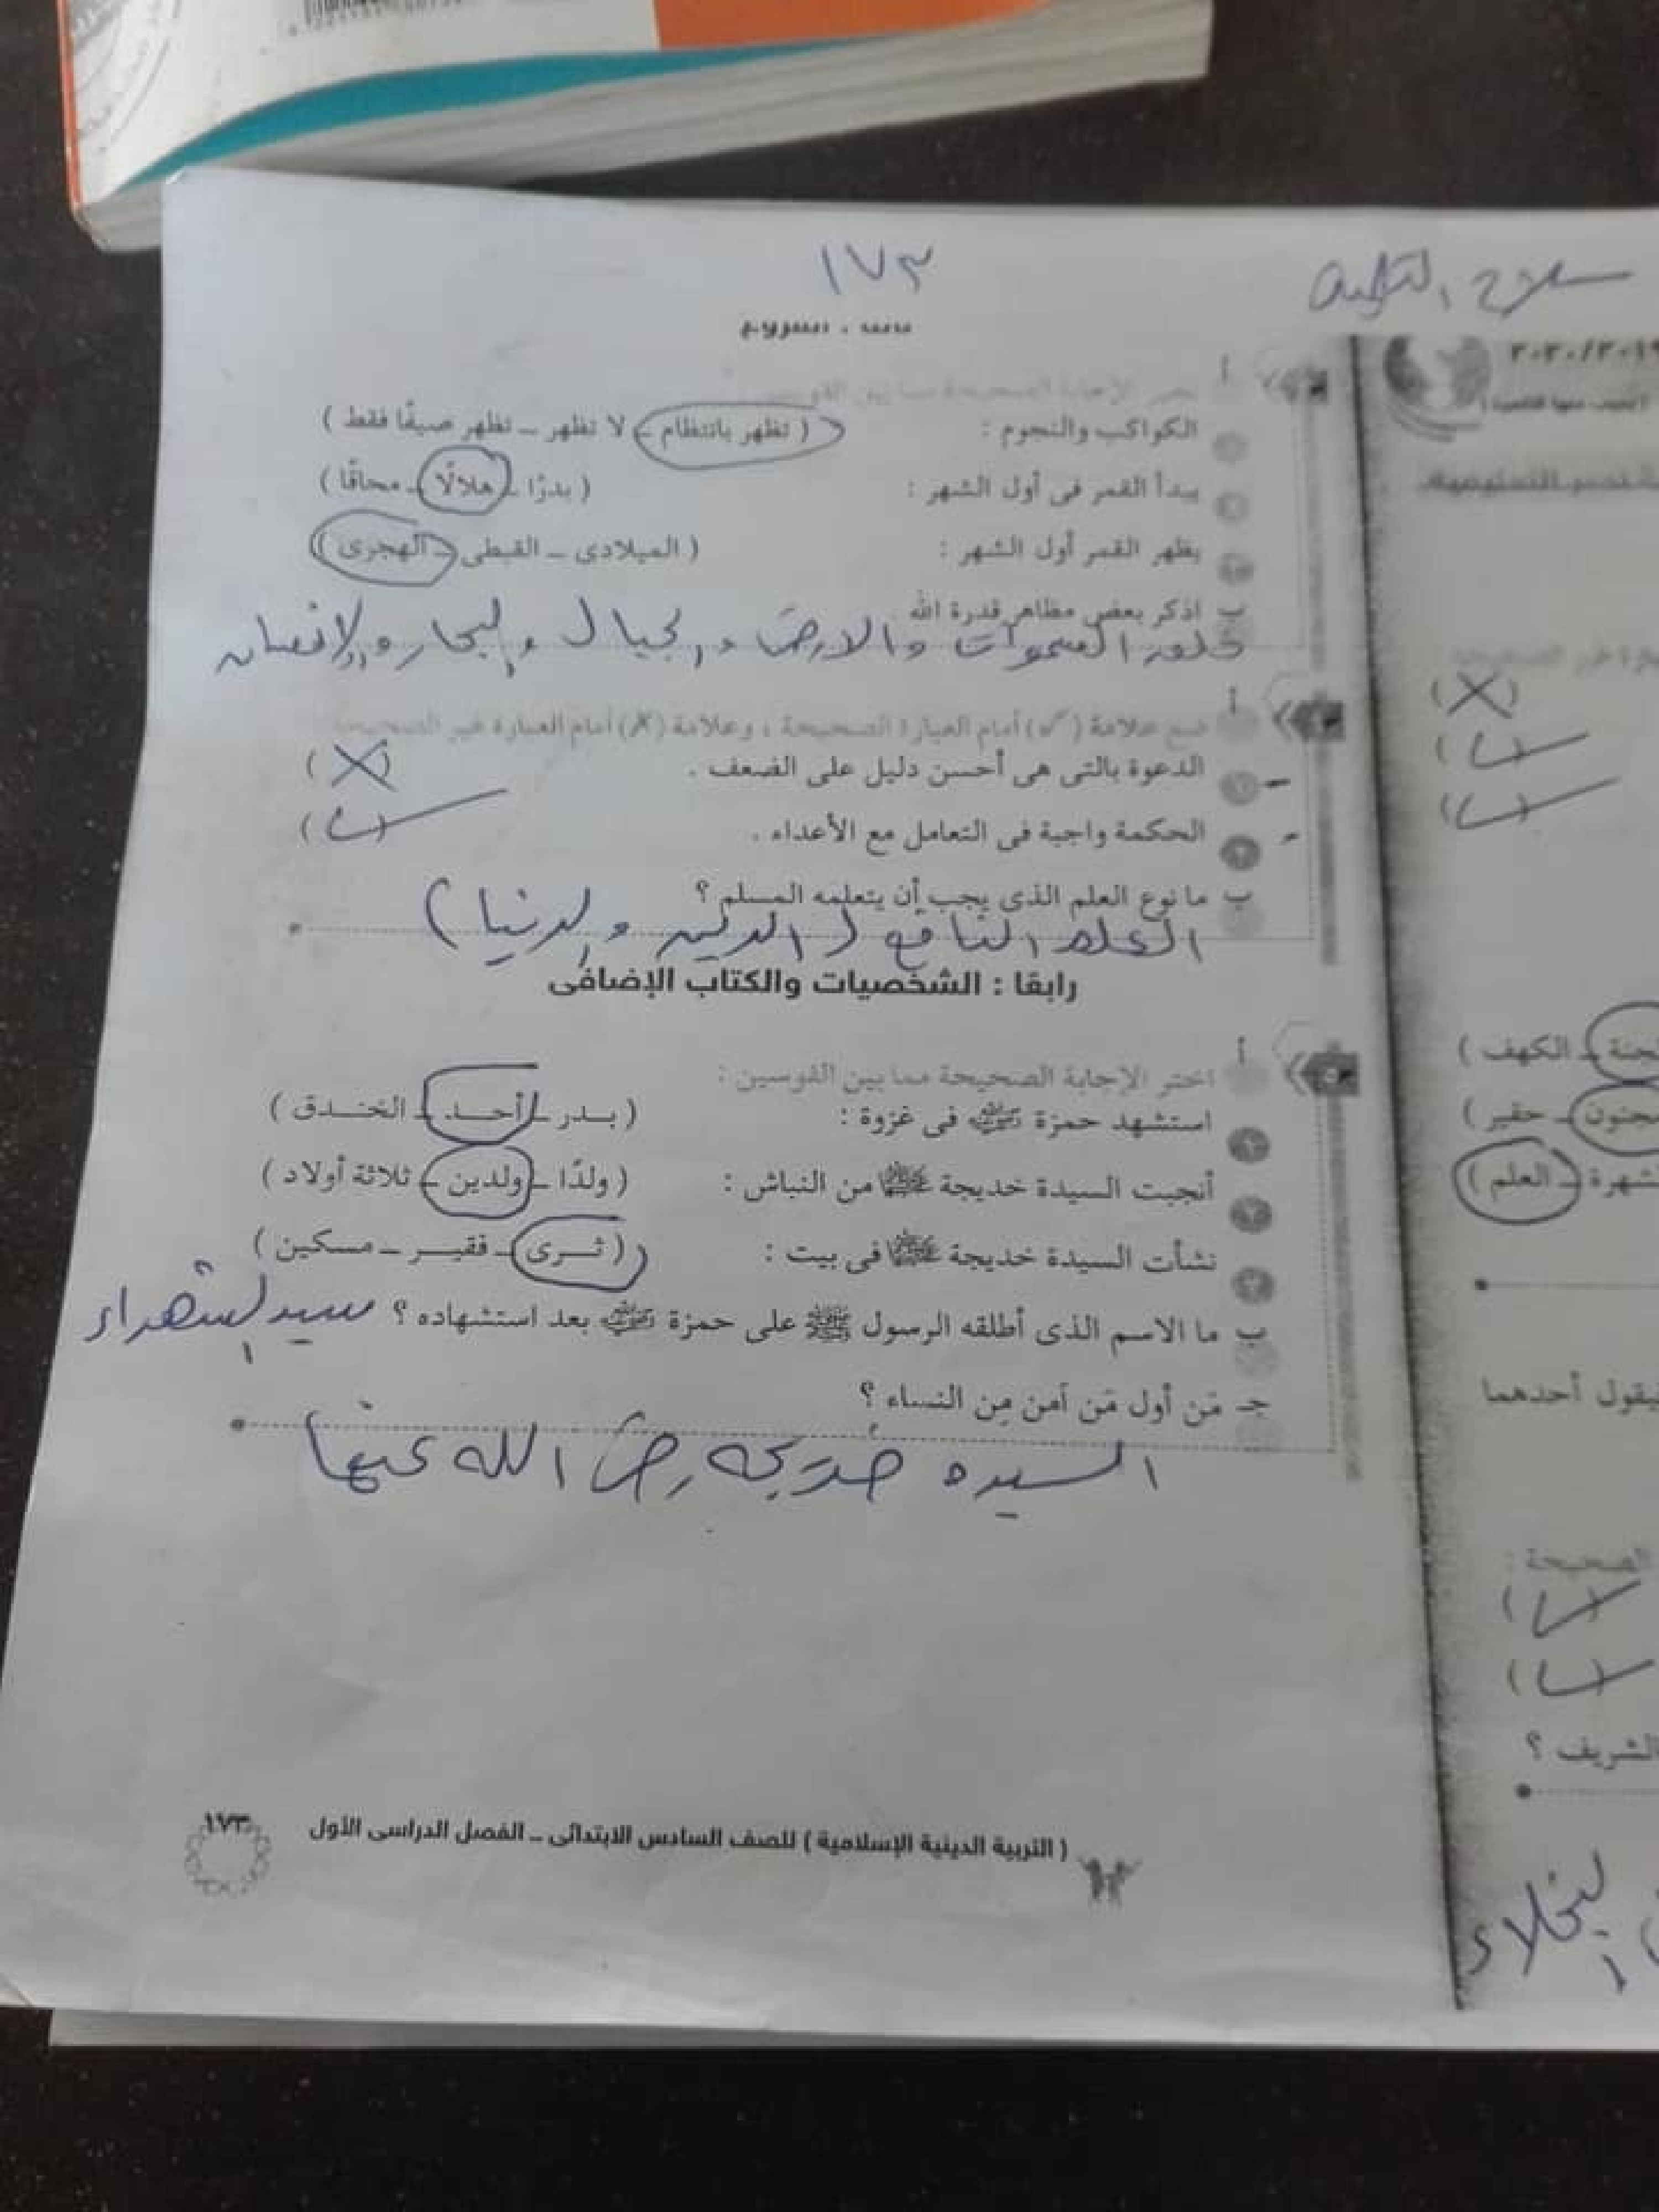 ١٧٣
سلاح التلميذ
٢٠٢٠/٢٠١٩
أ اختر الإجابة الصحيحة مما بين القوسين :
الكواكب والنجوم : ( تظهر بانتظام ـ لا تظهر ـ تظهر صيفًا فقط )
يبدأ القمر فى أول الشهر : ( بدرًا ـ هلالًا ـ محاقًا )
يظهر القمر أول الشهر : ( الميلادى ـ القبطى ـ الهجرى )
ب اذكر بعض مظاهر قدرة الله
خلق السموات والارض والجبال والبحار والإنسان
أ ضع علامة (✓) أمام العبارة الصحيحة ، وعلامة (✗) أمام العبارة غير الصحيحة
١ الدعوة بالتى هى أحسن دليل على الضعف . (X)
٢ الحكمة واجبة فى التعامل مع الأعداء . (✓)
ب ما نوع العلم الذى يجب أن يتعلمه المسلم ؟
العلم النافع ( الدين والدنيا )
رابعًا : الشخصيات والكتاب الإضافى
أ اختر الإجابة الصحيحة مما بين القوسين :
١ استشهد حمزة رضي الله عنه فى غزوة : ( بدر ـ أحد ـ الخندق )
٢ أنجبت السيدة خديجة من النباش : ( ولدًا ـ ولدين ـ ثلاثة أولاد )
٣ نشأت السيدة خديجة فى بيت : ( ثرى ـ فقير ـ مسكين )
ب ما الاسم الذى أطلقه الرسول ﷺ على حمزة بعد استشهاده ؟ سيد الشهداء
جـ مَن أول مَن آمن مِن النساء ؟
السيده خديجه رضى الله عنها
( التربية الدينية الإسلامية ) للصف السادس الابتدائى ـ الفصل الدراسى الأول
١٧٣
(X)
(✓)
(✓)
ـ الكهف )
ـ حقير )
ـ العلم )
فيقول أحدهما
الصحيحة :
(✓)
(✓)
الشريف ؟
البخلاء